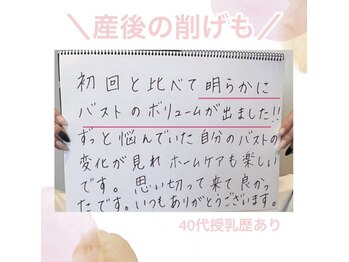 ＼産後の削げも／
初回と比べて明らかに
バストのボリュームが出ました!!
ずっと悩んでいた自分のバストの
変化が見れホームケアも楽しい
です。思い切って来て良かっ
たです。いつもありがとうございます。
40代授乳歴あり